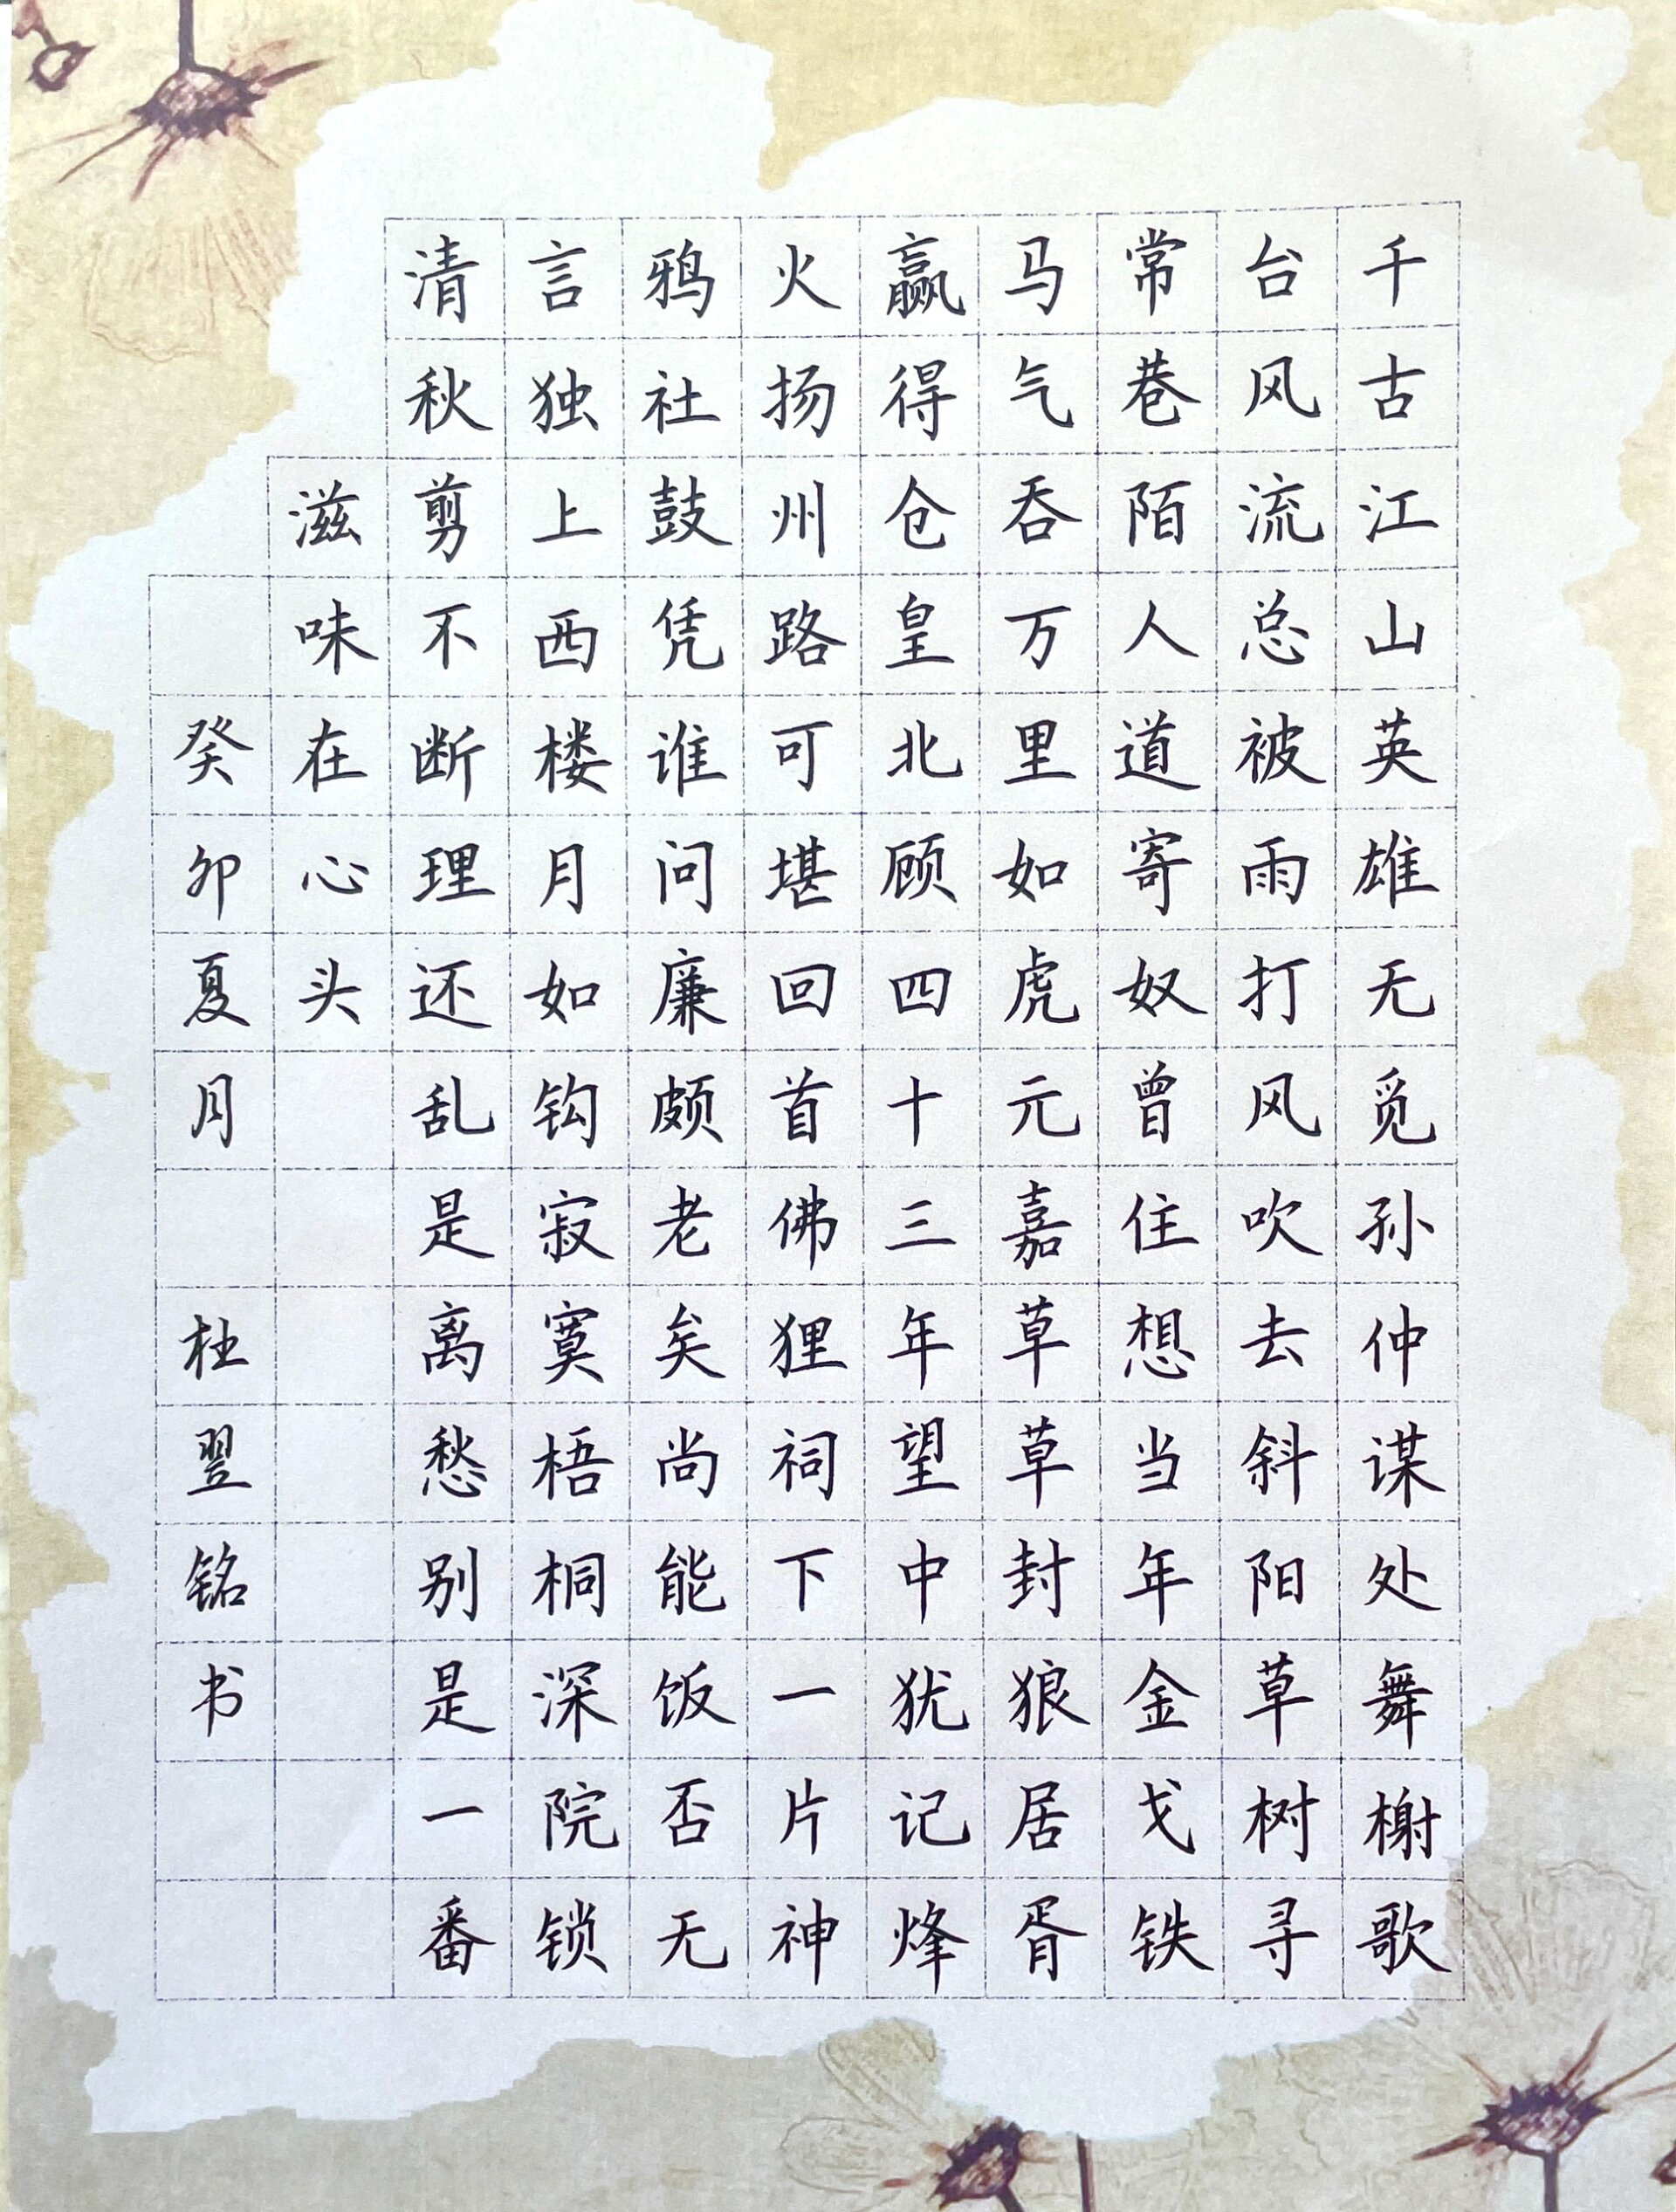 千古江山英雄无觅孙仲谋处舞榭歌
台风流总被雨打风吹去斜阳草树寻
常巷陌人道寄奴曾住想当年金戈铁
马气吞万里如虎元嘉草草封狼居胥
赢得仓皇北顾四十三年望中犹记烽
火扬州路可堪回首佛狸祠下一片神
鸦社鼓凭谁问廉颇老矣尚能饭否无
言独上西楼月如钩寂寞梧桐深院锁
清秋剪不断理还乱是离愁别是一番
滋味在心头
癸卯夏月 杜翌铭书